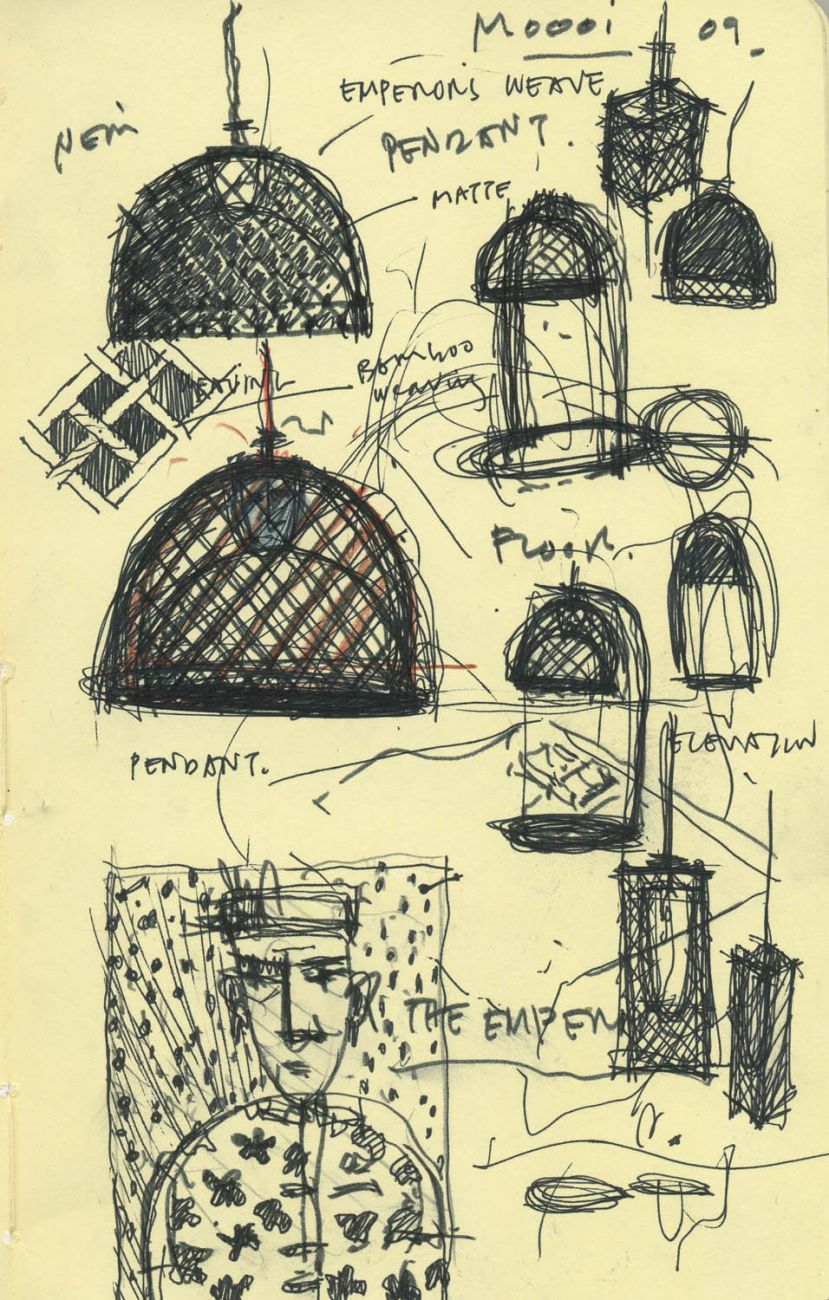 Moooi 09.
EMPERORS WEAVE
PENDANT.
MATTE
WEAVING
Bamboo
weaving
FLOOR.
ELEVATION
PENDANT.
THE EMPEROR